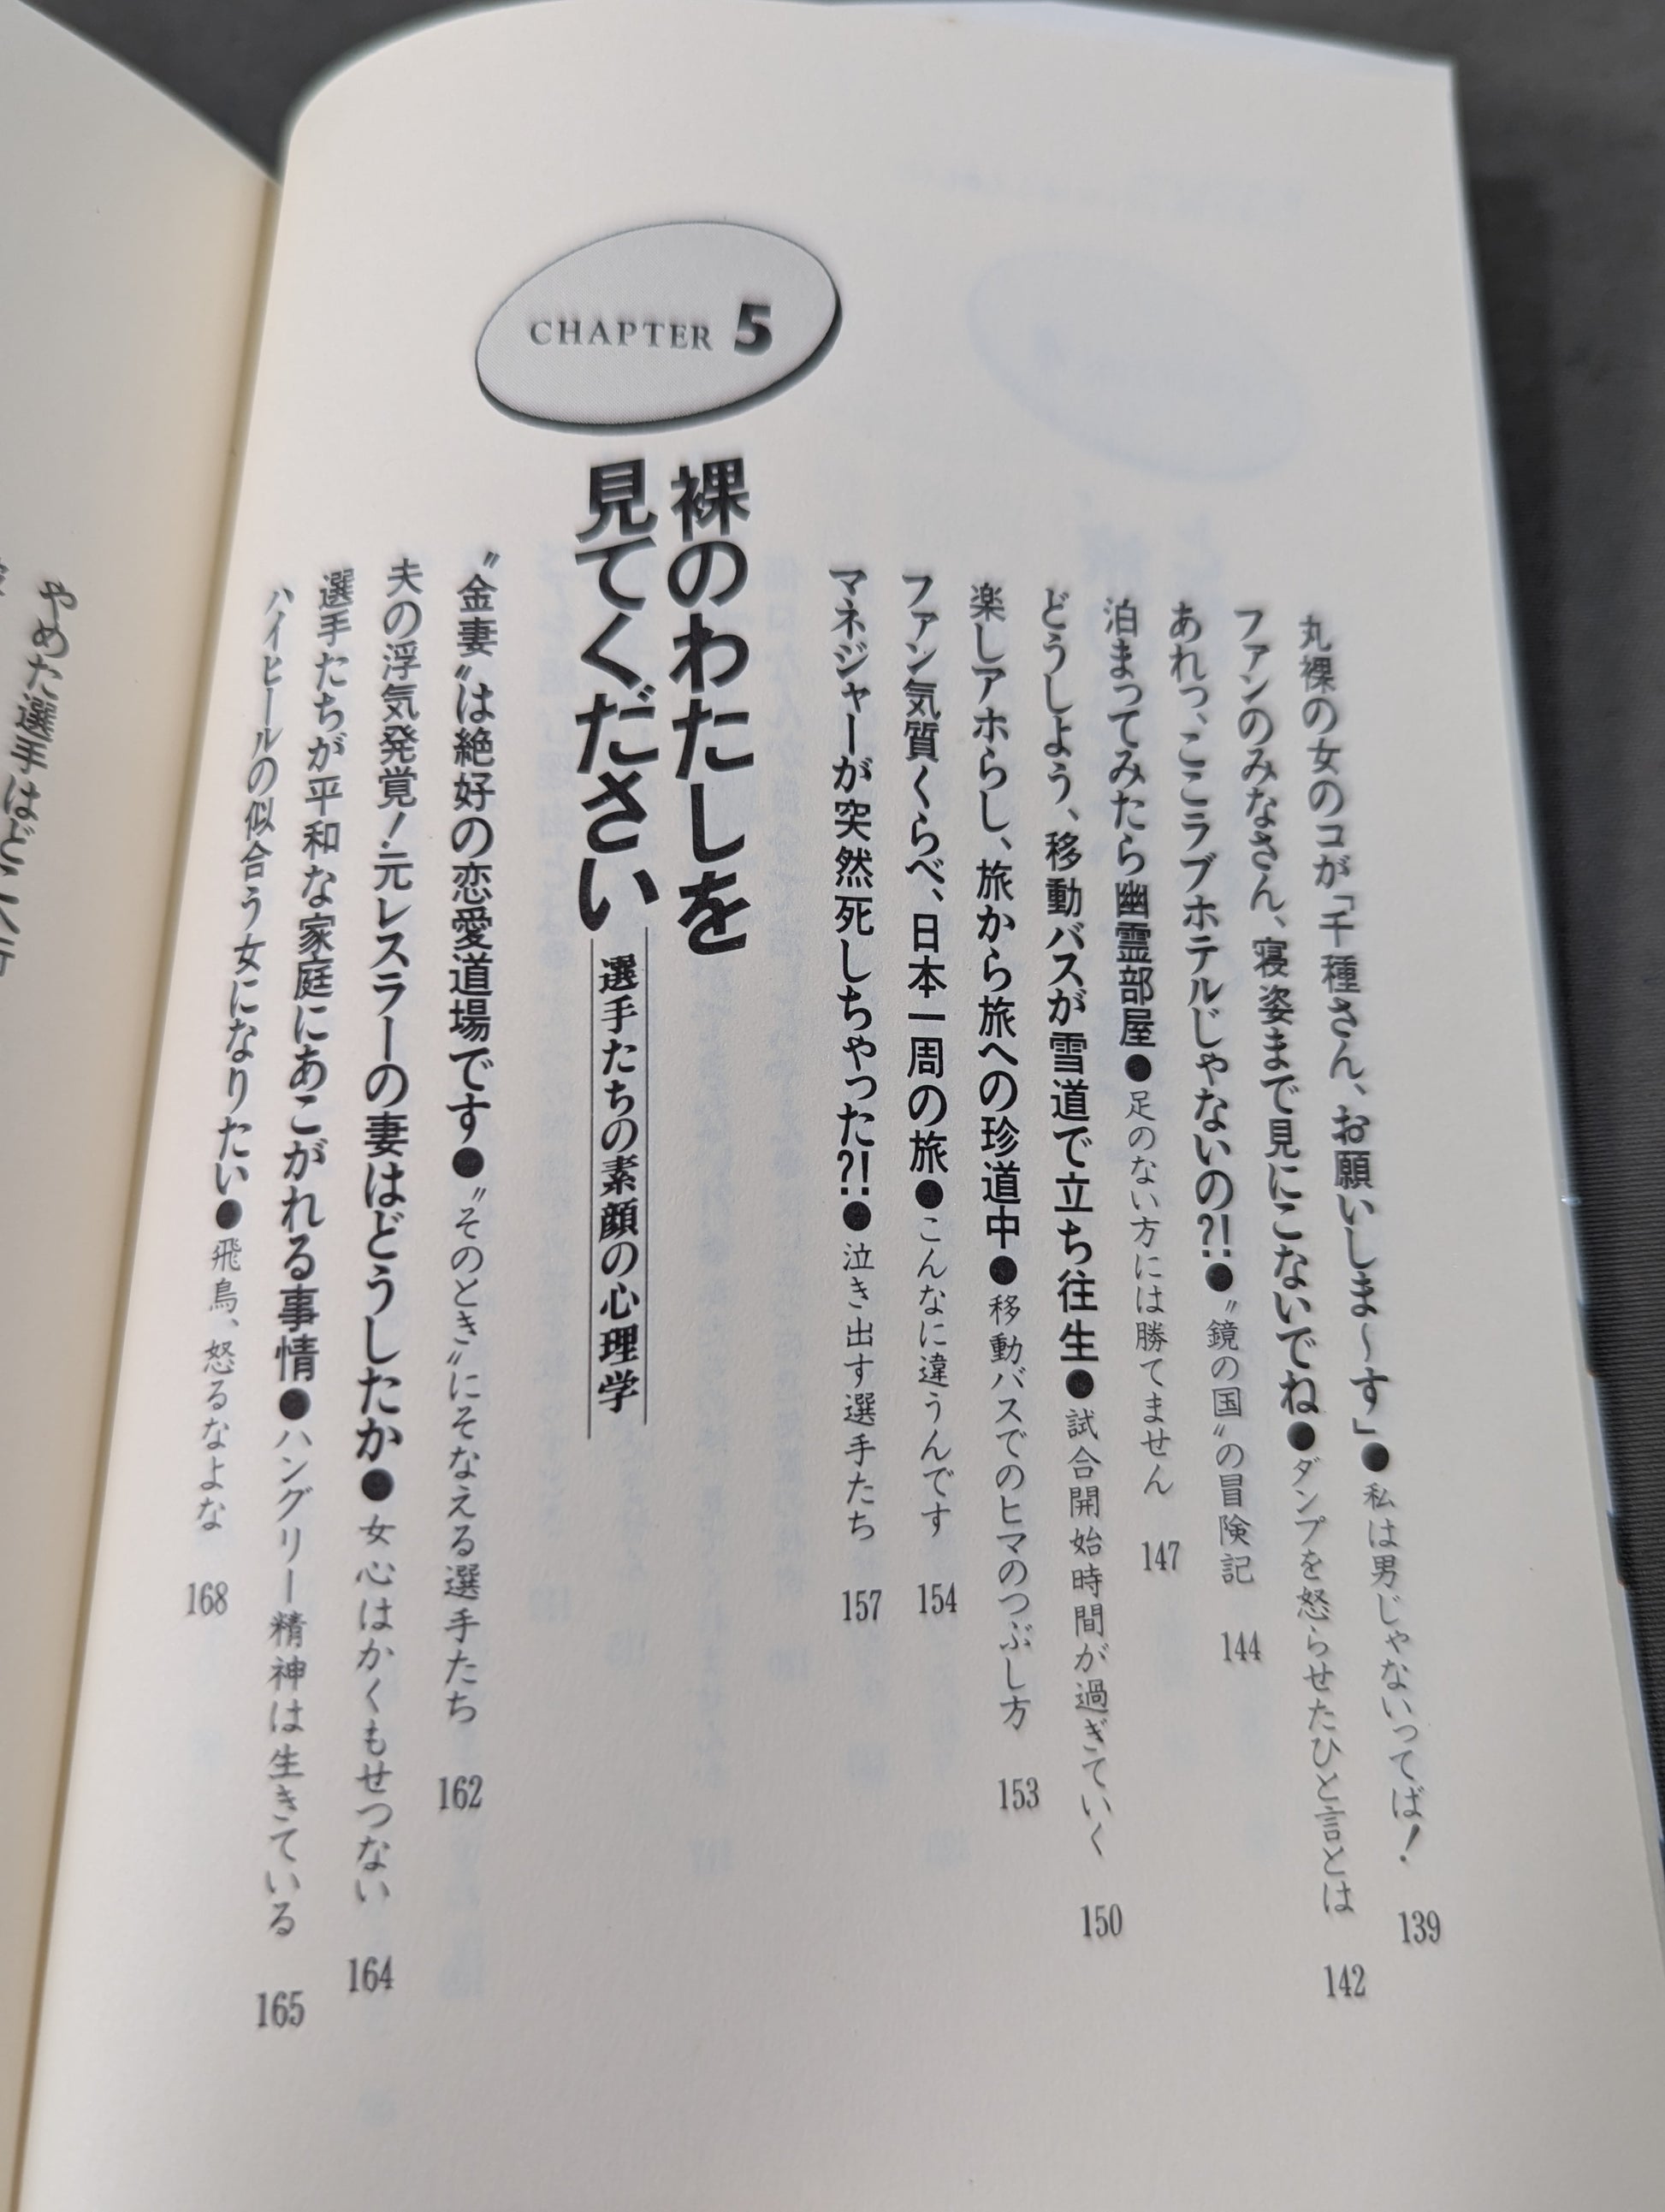 丸裸の女のコが「千種さん、お願いしま〜す」●私は男じゃないってば！ 139
ファンのみなさん、寝姿まで見にこないでね●ダンプを怒らせたひと言とは 142
あれっ、ここラブホテルじゃないの?!●〝鏡の国〟の冒険記 144
泊まってみたら幽霊部屋●足のない方には勝てません 147
どうしよう、移動バスが雪道で立ち往生●試合開始時間が過ぎていく 150
楽しアホらし、旅から旅への珍道中●移動バスでのヒマのつぶし方 153
ファン気質くらべ、日本一周の旅●こんなに違うんです 154
マネジャーが突然死しちゃった?!●泣き出す選手たち 157
CHAPTER 5
裸のわたしを
見てください
選手たちの素顔の心理学
〝金妻〟は絶好の恋愛道場です●〝そのとき〟にそなえる選手たち 162
夫の浮気発覚！元レスラーの妻はどうしたか●女心はかくもせつない 164
選手たちが平和な家庭にあこがれる事情●ハングリー精神は生きている 165
ハイヒールの似合う女になりたい●飛鳥、怒るなよな 168
やめた選手はどこへ行